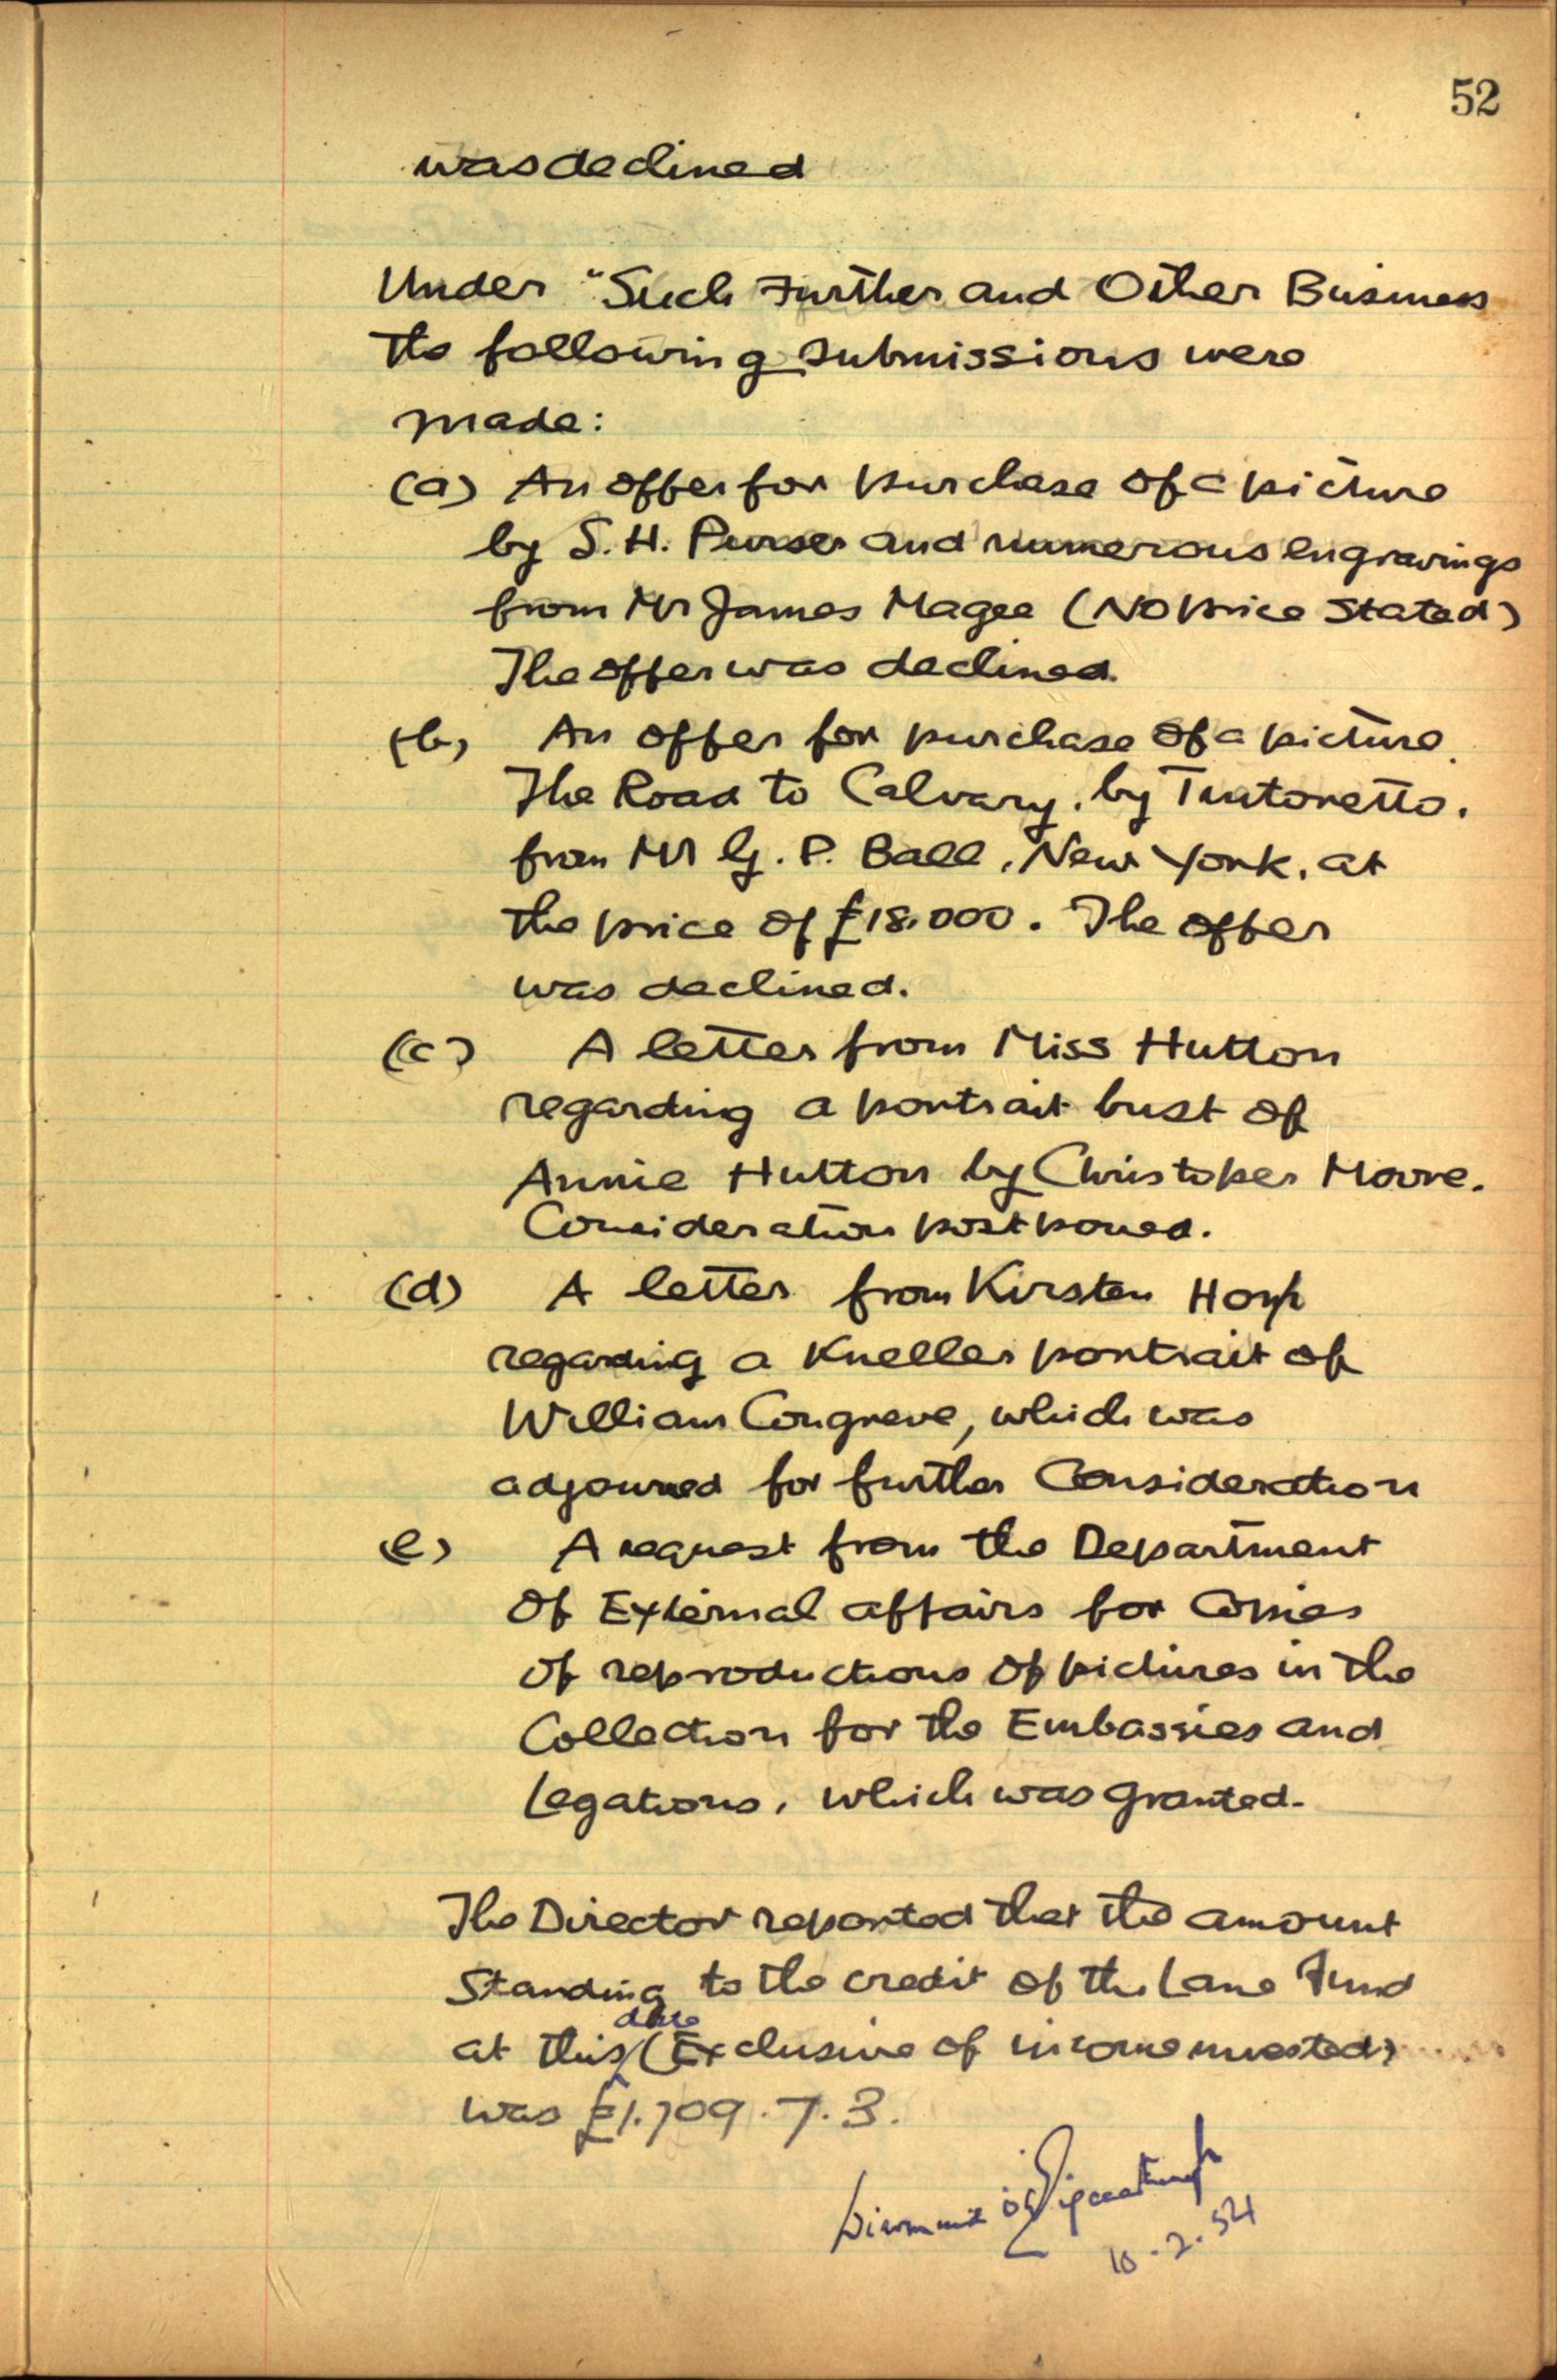 52
was declined
Under "Such Further and Other Business
the following submissions were
made:
(a) An offer for purchase of a picture
by S. H. Purser and numerous engravings
from Mr James Magee (No price stated)
The offer was declined.
(b) An offer for purchase of a picture.
The Road to Calvary, by Tintoretto.
from Mr G. P. Ball, New York, at
the price of £18,000. The offer
was declined.
(c) A letter from Miss Hutton
regarding a portrait bust of
Annie Hutton by Christoper Moore.
Consideration postponed.
(d) A letter from Kirsten
regarding a Kneller portrait of
William Congreve, which was
adjourned for further Consideration
(e) A request from the Department
of External affairs for Copies
of reproductions of pictures in the
Collection for the Embassies and
Legations, which was granted.
The Director reported that the amount
Standing to the credit of the Lane Fund
date
at this (Exclusive of income invested)
was £1.709.7.3.
10.2.54